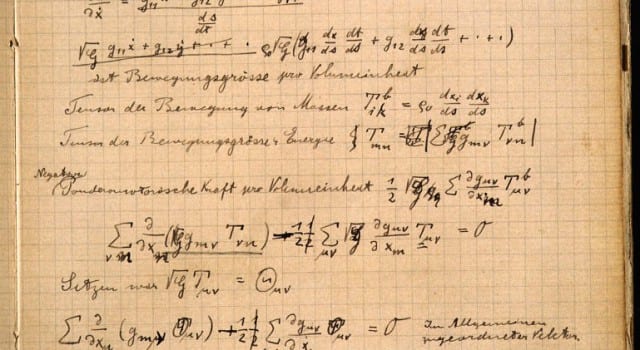 ∂ẋ = g₁₁
ds
dt
√G g₁₁ẋ + g₁₂ẏ + · · · ρ₀√G (g₁₁ dx/ds dt/ds + g₁₂ dy/ds dt/ds + · + ·)
ist Bewegungsgrösse pro Volumeinheit
Tensor der Bewegung von Massen T^b_ik = ρ₀ dx_i/ds dx_k/ds
Tensor der Bewegungsgrösse u. Energie T_mn = √G Σ g_mν T^b_νn
Negative
Ponderomotorische Kraft pro Volumeinheit 1/2 √G Σ ∂g_μν/∂x_m T^b_μν
Σ_νn ∂/∂x_n (√G g_mν T_νn) - 1/2 Σ_μν √G ∂g_μν/∂x_m T_μν = 0
Setzen wir √G T_μν = Θ_μν
Σ ∂/∂x_n (g_mν Θ_μν) - 1/2 Σ ∂g_μν Θ_μν = 0 Im Allgemeinen
zugeordneter Vektor